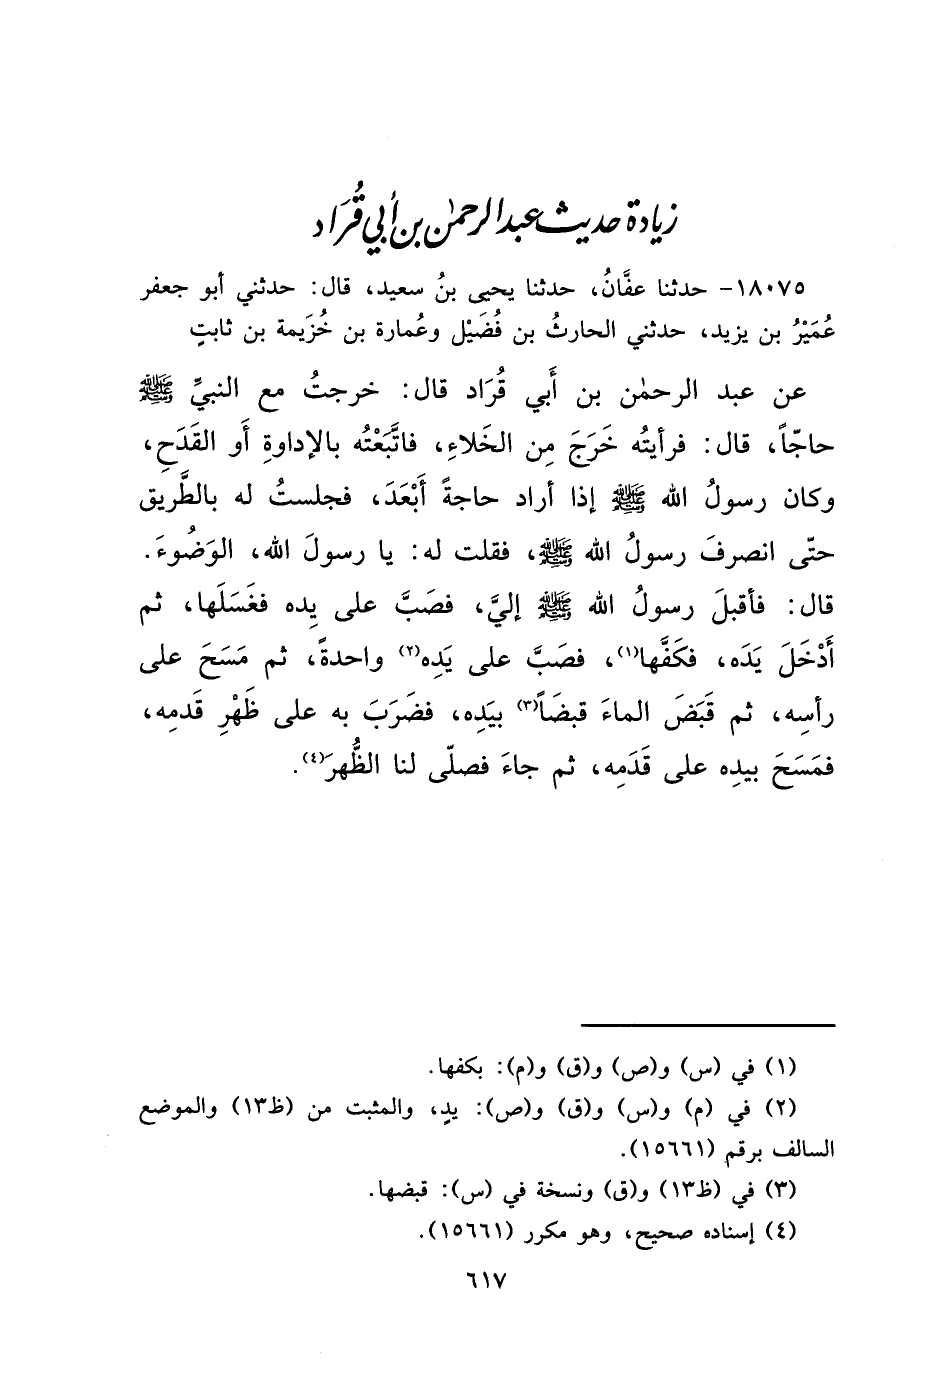 زيادة حديث عبد الرحمٰن بن أبي قُرَاد
١٨٠٧٥- حدثنا عفَّانُ، حدثنا يحيى بنُ سعيد، قال: حدثني أبو جعفر
عُمَيْرُ بن يزيد، حدثني الحارثُ بن فُضَيْل وعُمارة بن خُزَيمة بن ثابتٍ
عن عبد الرحمٰن بن أَبي قُرَاد قال: خرجتُ مع النبيِّ ﷺ
حاجّاً، قال: فرأيتُه خَرَجَ مِن الخَلاءِ، فاتَّبَعْتُه بالإداوةِ أَو القَدَحِ،
وكان رسولُ الله ﷺ إذا أراد حاجةً أَبْعَدَ، فجلستُ له بالطَّريق
حتّى انصرفَ رسولُ الله ﷺ، فقلت له: يا رسولَ الله، الوَضُوءَ.
قال: فأقبلَ رسولُ الله ﷺ إليَّ، فصَبَّ على يدِه فغَسَلَها، ثم
أَدْخَلَ يَدَه، فكَفَّها(١)، فصَبَّ على يَدِه(٢) واحدةً، ثم مَسَحَ على
رأسِه، ثم قَبَضَ الماءَ قبضَاً(٣) بيَدِه، فضَرَبَ به على ظَهْرِ قَدمِه،
فمَسَحَ بيدِه على قَدَمِه، ثم جاءَ فصلّى لنا الظُّهرَ(٤).
(١) في (س) و(ص) و(ق) و(م): بكفها.
(٢) في (م) و(س) و(ق) و(ص): يدٍ، والمثبت من (ظ١٣) والموضع
السالف برقم (١٥٦٦١).
(٣) في (ظ١٣) و(ق) ونسخة في (س): قبضها.
(٤) إسناده صحيح، وهو مكرر (١٥٦٦١).
٦١٧